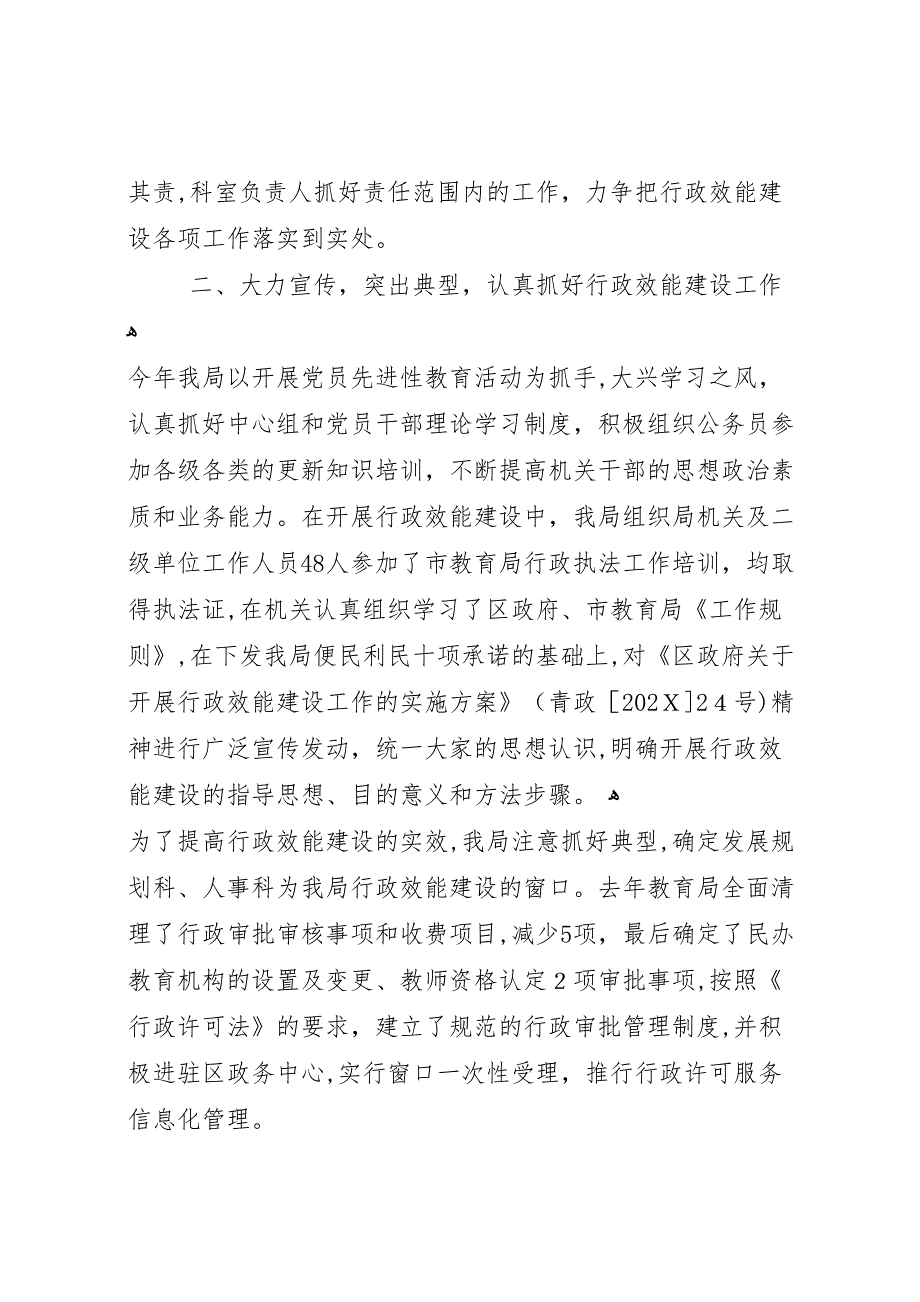 其责,科室负责人抓好责任范围内的工作，力争把行政效能建
设各项工作落实到实处。
二、大力宣传，突出典型，认真抓好行政效能建设工作
ﻫ
今年我局以开展党员先进性教育活动为抓手,大兴学习之风，
认真抓好中心组和党员干部理论学习制度，积极组织公务员参
加各级各类的更新知识培训，不断提高机关干部的思想政治素
质和业务能力。在开展行政效能建设中，我局组织局机关及二
级单位工作人员48人参加了市教育局行政执法工作培训，均取
得执法证,在机关认真组织学习了区政府、市教育局《工作规
则》,在下发我局便民利民十项承诺的基础上,对《区政府关于
开展行政效能建设工作的实施方案》（青政［202X]2４号)精
神进行广泛宣传发动，统一大家的思想认识,明确开展行政效
能建设的指导思想、目的意义和方法步骤。 ﻫ
为了提高行政效能建设的实效,我局注意抓好典型,确定发展规
划科、人事科为我局行政效能建设的窗口。去年教育局全面清
理了行政审批审核事项和收费项目,减少5项，最后确定了民办
教育机构的设置及变更、教师资格认定２项审批事项,按照《
行政许可法》的要求，建立了规范的行政审批管理制度,并积
极进驻区政务中心,实行窗口一次性受理，推行行政许可服务
信息化管理。